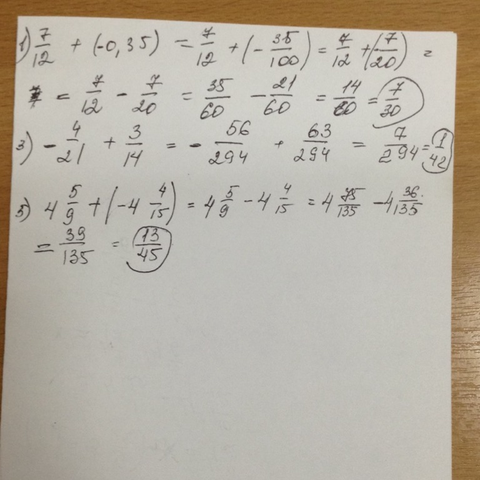 1) 7/12 + (-0,35) = 7/12 + (-35/100) = 7/12 + (-7/20) =
= 7/12 - 7/20 = 35/60 - 21/60 = 14/60 = 7/30
3) -4/21 + 3/14 = -56/294 + 63/294 = 7/294 = 1/42
5) 4 5/9 + (-4 4/15) = 4 5/9 - 4 4/15 = 4 75/135 - 4 36/135
= 39/135 = 13/45